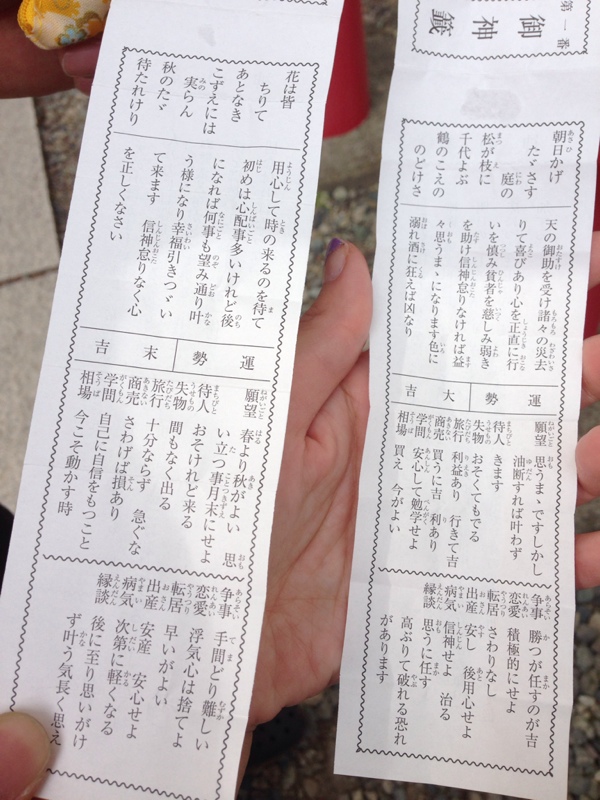 第一番
御神籤
朝日かげ
たゞさす 庭の
松が枝に
千代よぶ
鶴のこえの のどけさ
天の御助を受け諸々の災去
りて喜びあり心を正直に行
いを慎み貧者を慈しみ弱き
を助け信神怠りなければ益
々思うまゝになります色に
溺れ酒に狂えば凶なり
運勢 大吉
願望 思うまゝですしかし
油断すれば叶わず
待人 きます
失物 おそくてもでる
旅行 利益あり 行きて吉
商売 買うに吉 利あり
学問 安心して勉学せよ
相場 買え 今がよい
争事 勝つが任すのが吉
恋愛 積極的にせよ
転居 さわりなし
出産 安し 後用心せよ
病気 信神せよ 治る
縁談 思うに任す
高ぶりて破れる恐れ
があります
花は皆
ちりて
あとなき
こずえには
実らん
秋のたゞ
待たれけり
用心して時の来るのを待て
初めは心配事多いけれど後
になれば何事も望み通り叶
う様になり幸福引きつゞい
て来ます 信神怠りなく心
を正しくなさい
運勢 末吉
願望 春より秋がよい 思
い立つ事月末にせよ
待人 おそけれど来る
失物 間もなく出る
旅行 十分ならず 急ぐな
商売 さわげば損あり
学問 自己に自信をもつこと
相場 今こそ動かす時
争事 手間どり難しい
恋愛 浮気心は捨てよ
転居 早いがよい
出産 安産 安心せよ
病気 次第に軽くなる
縁談 後に至り思いがけ
ず叶う気長く思え